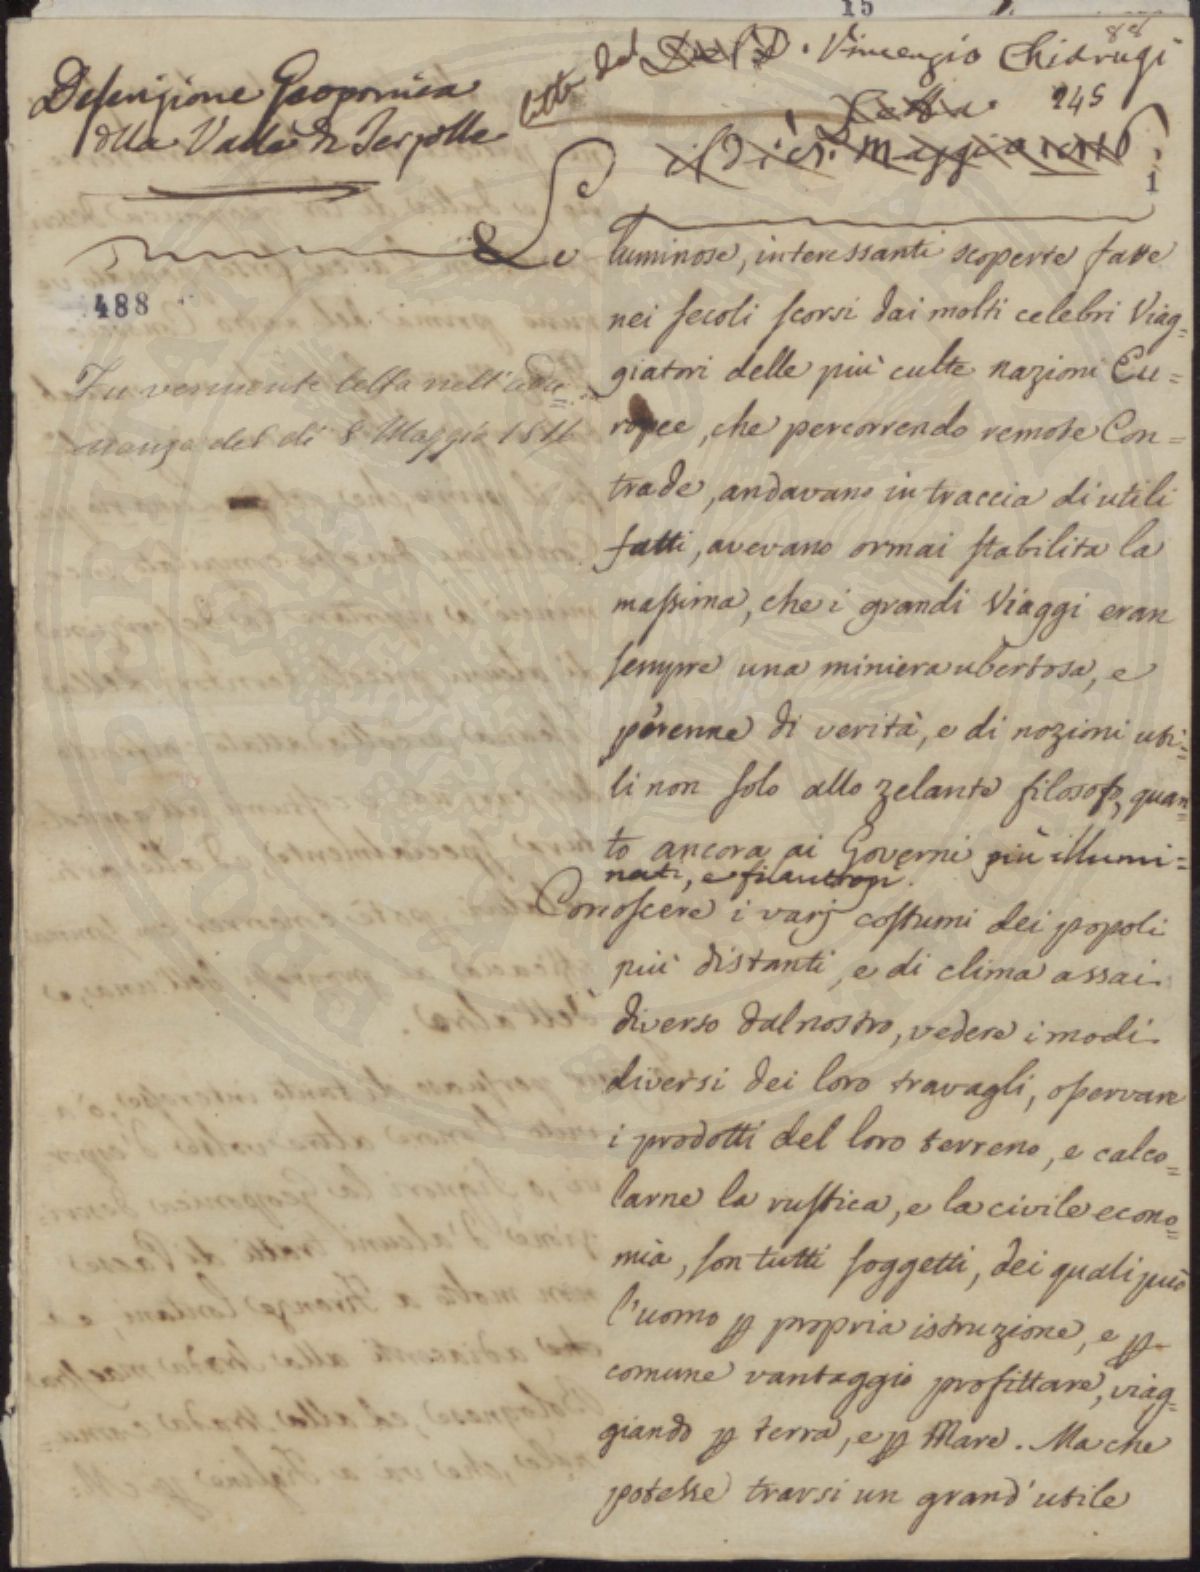 15
88
Descrizione Geoponica
della Valle di Terzolle
letta dal Dott. D. Vincenzio Chiarugi
Letta
245
il dì 5. Maggio
1
488
Fu veramente letta nell'adu=
nanza del dì 8 Maggio 1816
Le luminose, interessanti scoperte fatte
nei secoli scorsi dai molti celebri Viag=
giatori delle più culte nazioni Eu=
ropee, che percorrendo remote Con=
trade, andavano in traccia di utili
fatti, avevano ormai stabilita la
massima, che i grandi Viaggi eran
sempre una miniera ubertosa, e
perenne di verità, e di nozioni uti=
li non solo allo zelante filosofo, quan=
to ancora ai Governi più illumi=
nati, e filantropi.
Conoscere i varj costumi dei popoli
più distanti, e di clima assai
diverso dal nostro, vedere i modi
diversi dei loro travagli, osservare
i prodotti del loro terreno, e calco=
larne la rustica, e la civile econo=
mia, son tutti soggetti, dei quali può
l'uomo p propria istruzione, e p
comune vantaggio profittare, viag=
giando p terra, e p Mare. Ma che
potesse trarsi un grand'utile